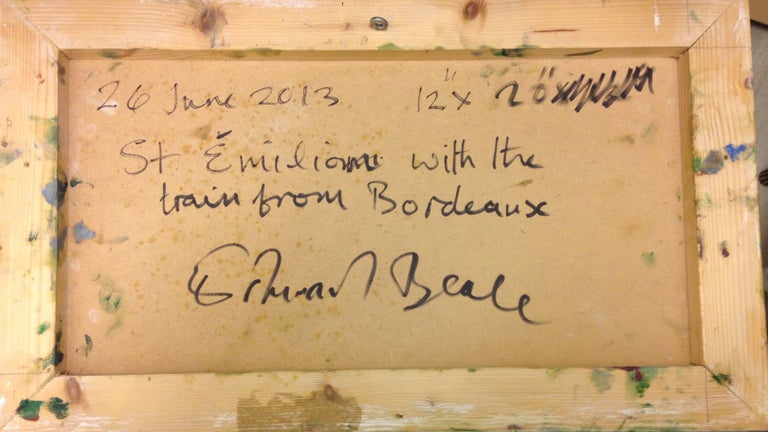 26 June 2013 12" x 20"
St Émilion with the
train from Bordeaux
Edward Beale